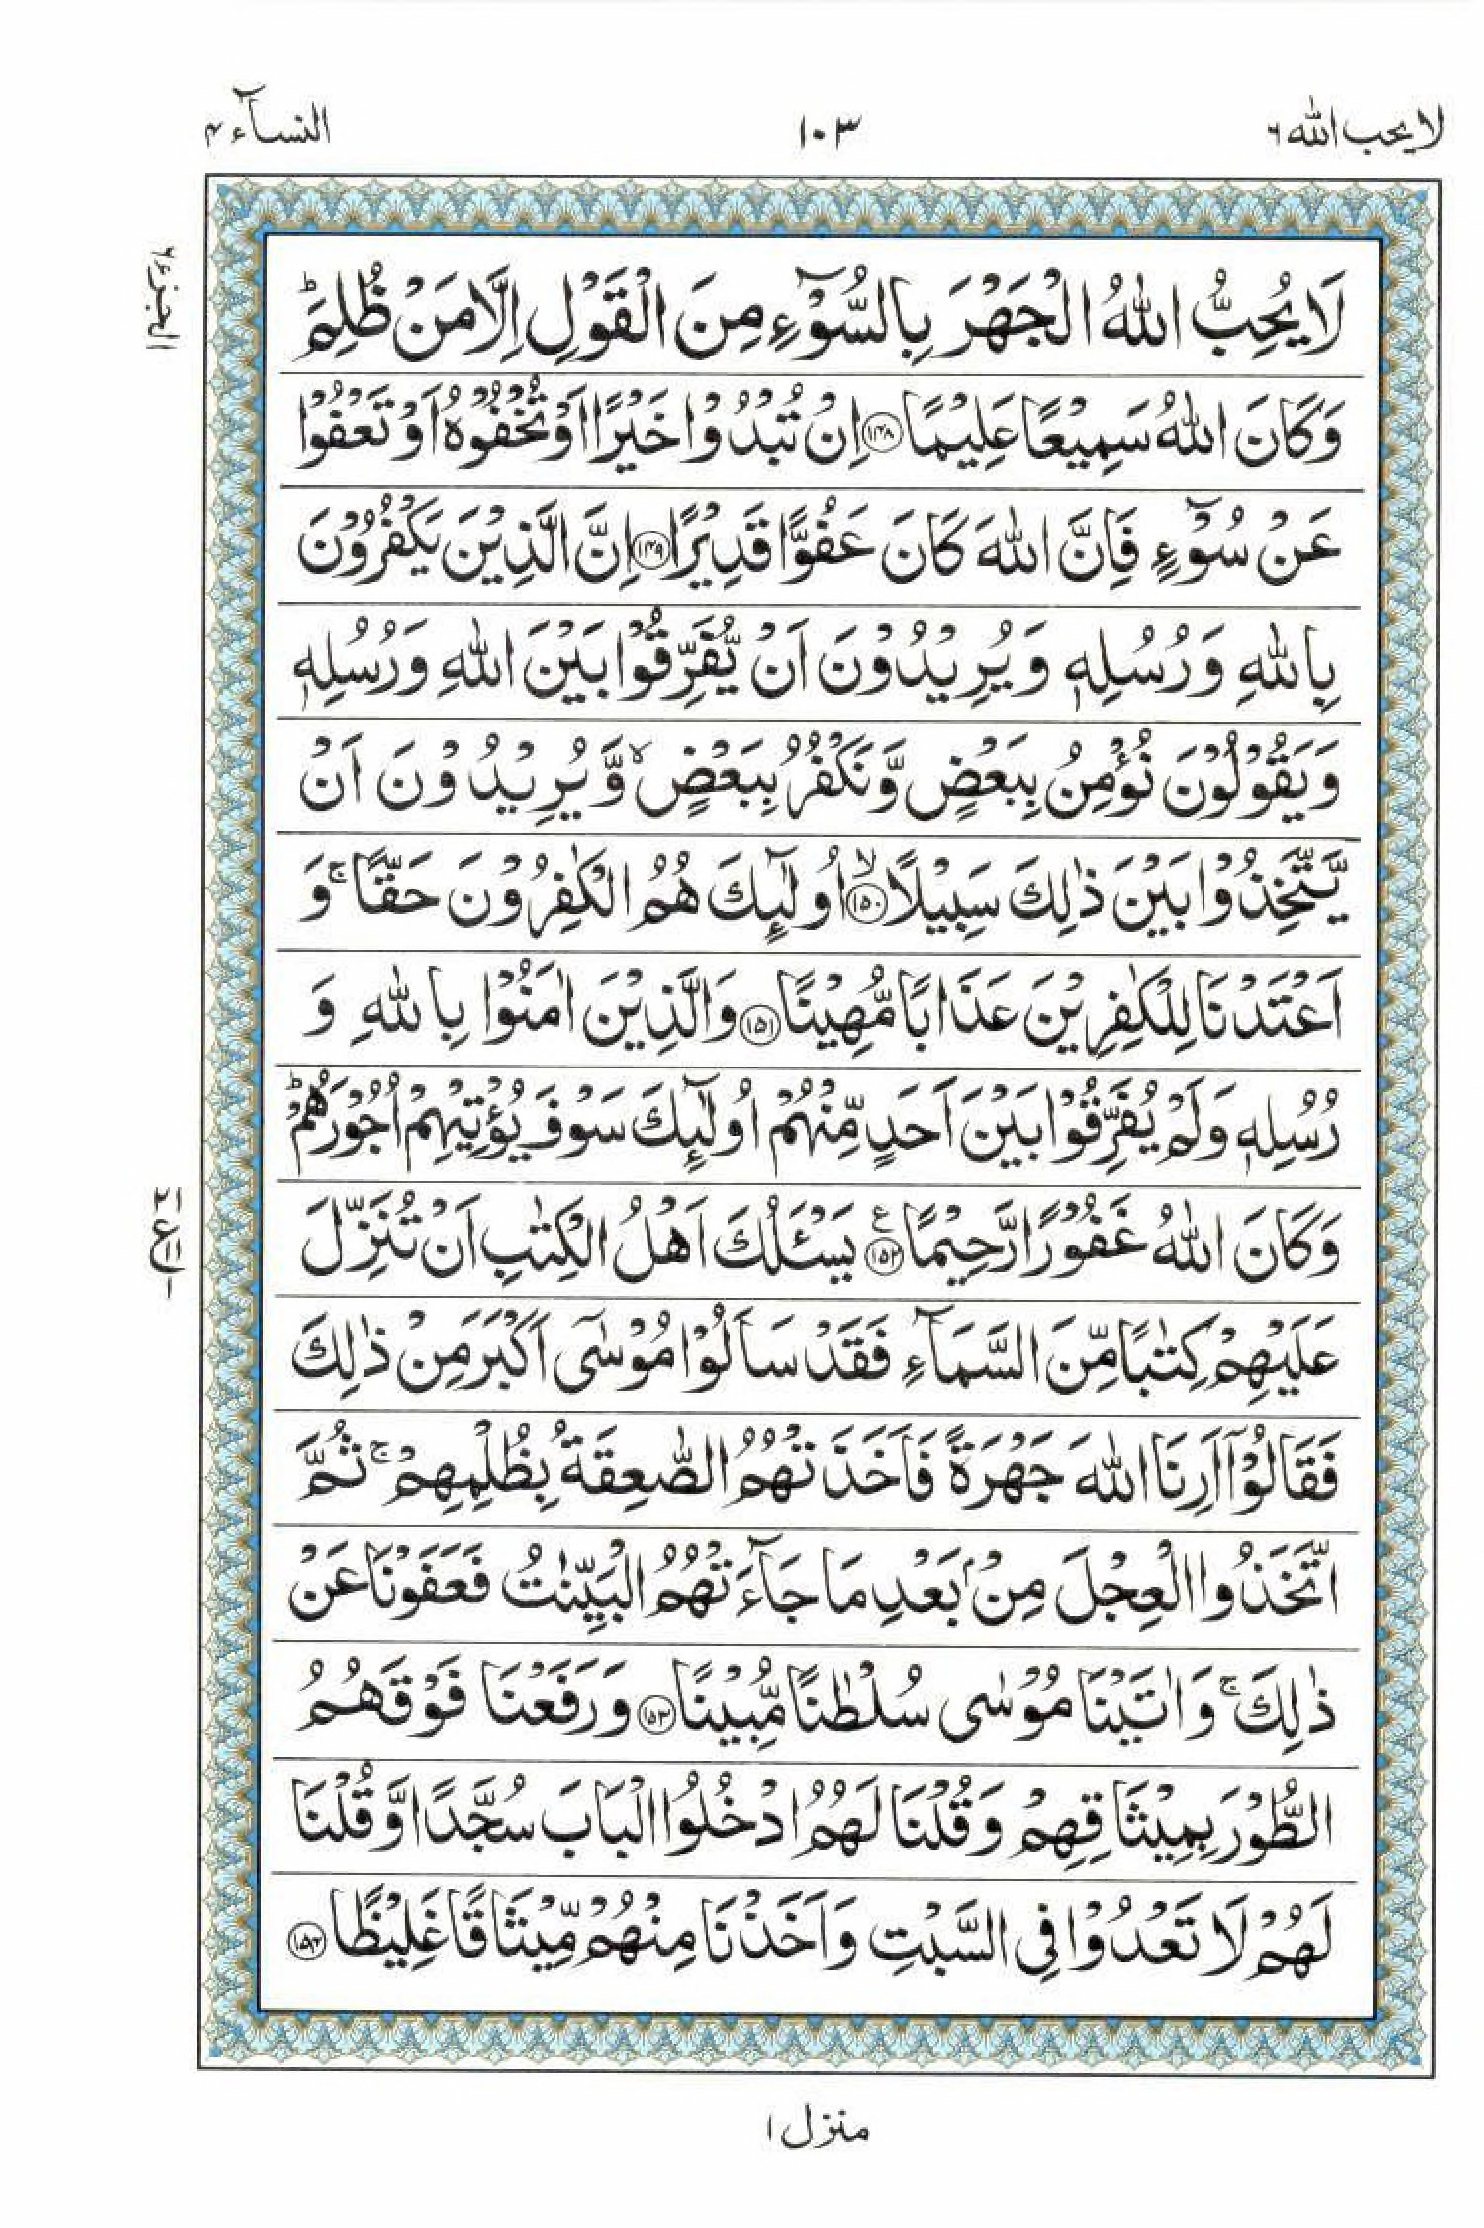 لا يحب الله ٦
١٠٣
النسآء ٤
الجزء ٦
لَا يُحِبُّ اللّٰهُ الْجَهْرَ بِالسُّوْٓءِ مِنَ الْقَوْلِ اِلَّا مَنْ ظُلِمَ ؕ
وَكَانَ اللّٰهُ سَمِيْعًا عَلِيْمًا ﴿۱۴۸﴾ اِنْ تُبْدُوْا خَيْرًا اَوْ تُخْفُوْهُ اَوْ تَعْفُوْا
عَنْ سُوْٓءٍ فَاِنَّ اللّٰهَ كَانَ عَفُوًّا قَدِيْرًا ﴿۱۴۹﴾ اِنَّ الَّذِيْنَ يَكْفُرُوْنَ
بِاللّٰهِ وَرُسُلِهٖ وَيُرِيْدُوْنَ اَنْ يُّفَرِّقُوْا بَيْنَ اللّٰهِ وَرُسُلِهٖ
وَيَقُوْلُوْنَ نُؤْمِنُ بِبَعْضٍ وَّنَكْفُرُ بِبَعْضٍ ۙ وَّيُرِيْدُوْنَ اَنْ
يَّتَّخِذُوْا بَيْنَ ذٰلِكَ سَبِيْلًا ۙ﴿۱۵۰﴾ اُولٰٓئِكَ هُمُ الْكٰفِرُوْنَ حَقًّا ۚ وَ
اَعْتَدْنَا لِلْكٰفِرِيْنَ عَذَابًا مُّهِيْنًا ﴿۱۵۱﴾ وَالَّذِيْنَ اٰمَنُوْا بِاللّٰهِ وَ
رُسُلِهٖ وَلَمْ يُفَرِّقُوْا بَيْنَ اَحَدٍ مِّنْهُمْ اُولٰٓئِكَ سَوْفَ يُؤْتِيْهِمْ اُجُوْرَهُمْ ؕ
وَكَانَ اللّٰهُ غَفُوْرًا رَّحِيْمًا ﴿۱۵۲﴾ ع يَسْـَٔلُكَ اَهْلُ الْكِتٰبِ اَنْ تُنَزِّلَ
عَلَيْهِمْ كِتٰبًا مِّنَ السَّمَآءِ فَقَدْ سَاَلُوْا مُوْسٰٓى اَكْبَرَ مِنْ ذٰلِكَ
فَقَالُوْٓا اَرِنَا اللّٰهَ جَهْرَةً فَاَخَذَتْهُمُ الصّٰعِقَةُ بِظُلْمِهِمْ ۚ ثُمَّ
اتَّخَذُوا الْعِجْلَ مِنْۢ بَعْدِ مَا جَآءَتْهُمُ الْبَيِّنٰتُ فَعَفَوْنَا عَنْ
ذٰلِكَ ۚ وَاٰتَيْنَا مُوْسٰى سُلْطٰنًا مُّبِيْنًا ﴿۱۵۳﴾ وَرَفَعْنَا فَوْقَهُمُ
الطُّوْرَ بِمِيْثَاقِهِمْ وَقُلْنَا لَهُمُ ادْخُلُوا الْبَابَ سُجَّدًا وَّقُلْنَا
لَهُمْ لَا تَعْدُوْا فِى السَّبْتِ وَاَخَذْنَا مِنْهُمْ مِّيْثَاقًا غَلِيْظًا ﴿۱۵۴﴾
منزل ١